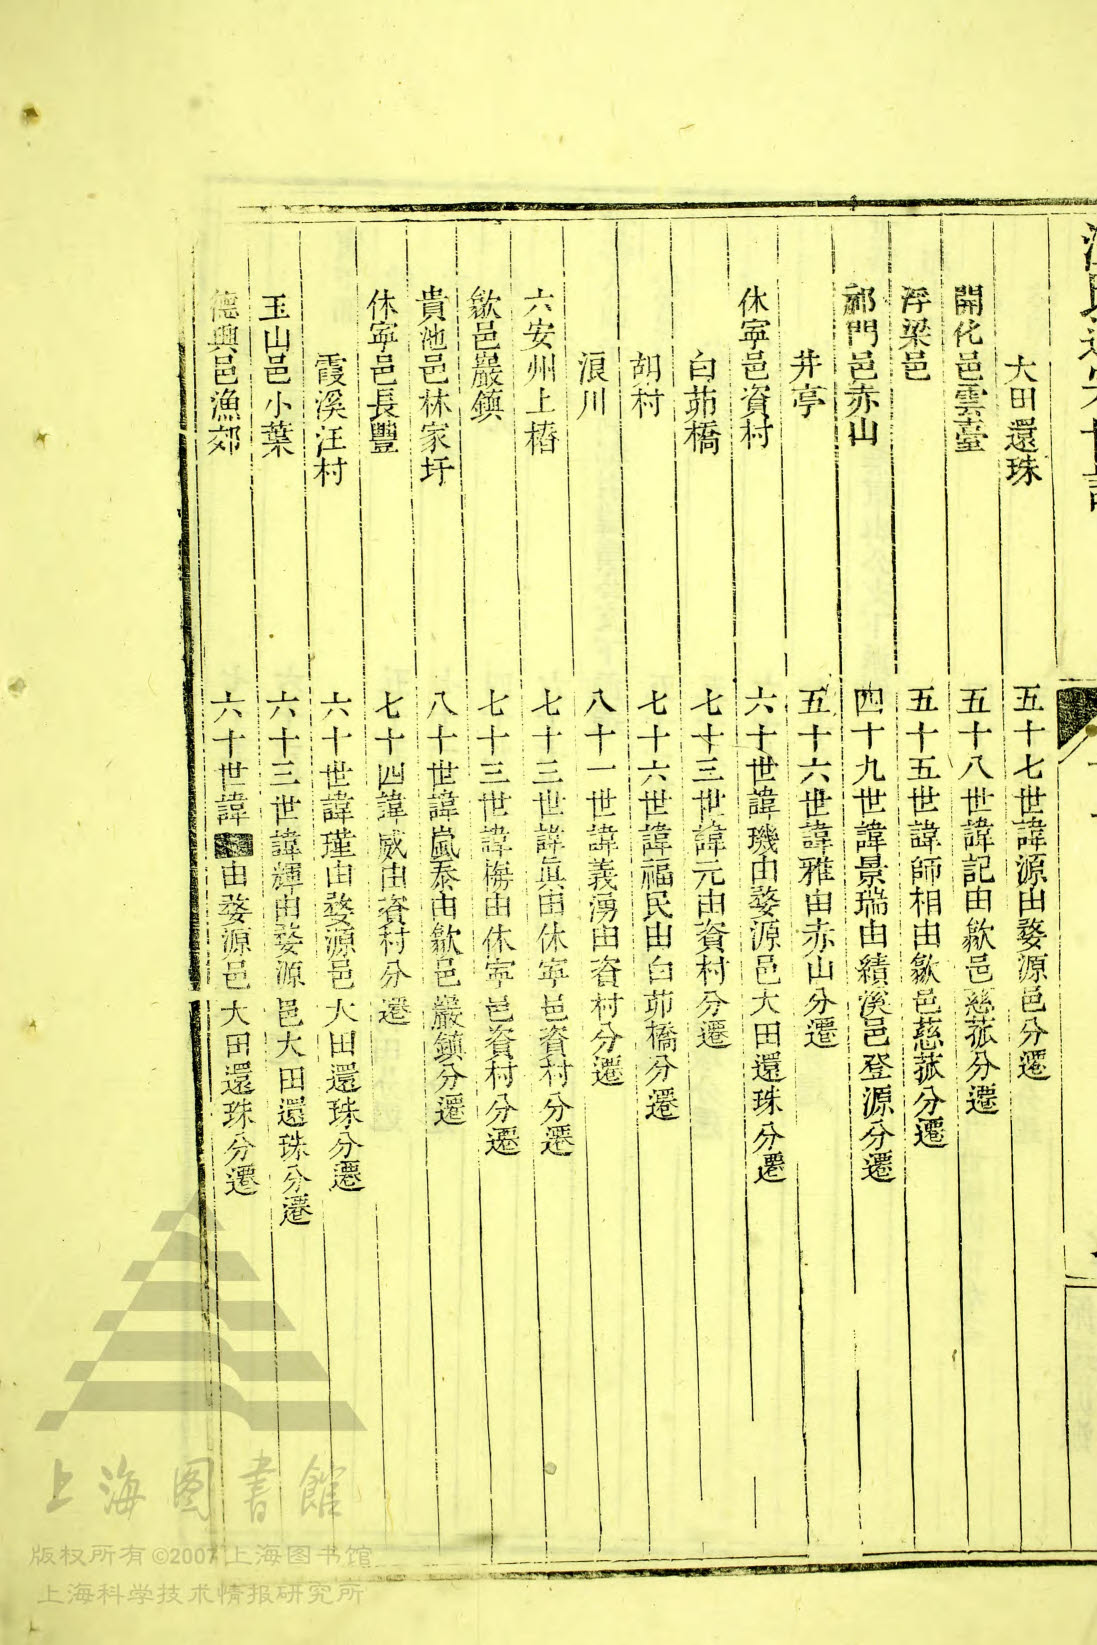 汪氏通宗世譜
大田還珠　五十七世諱源由婺源邑分遷
開化邑雲臺　五十八世諱記由歙邑慈菰分遷
浮梁邑　五十五世諱師相由歙邑慈菰分遷
祁門邑赤山　四十九世諱景瑞由績溪邑登源分遷
井亭　五十六世諱雅由赤山分遷
休寧邑資村　六十世諱璣由婺源邑大田還珠分遷
白茆橋　七十三世諱元由資村分遷
胡村　七十六世諱福民由白茆橋分遷
浪川　八十一世諱義湧由資村分遷
六安州上樁　七十三世諱眞由休寧邑資村分遷
歙邑巖鎮　七十三世諱梅由休寧邑資村分遷
貴池邑林家圩　八十世諱嵐泰由歙邑巖鎮分遷
休寧邑長豐　七十四諱威由資村分遷
霞溪汪村　六十世諱瑾由婺源邑大田還珠分遷
玉山邑小葉　六十三世諱輝由婺源邑大田還珠分遷
德興邑漁郊　六十世諱由婺源邑大田還珠分遷
上海图書館
版权所有©2007上海图书馆
上海科学技术情报研究所